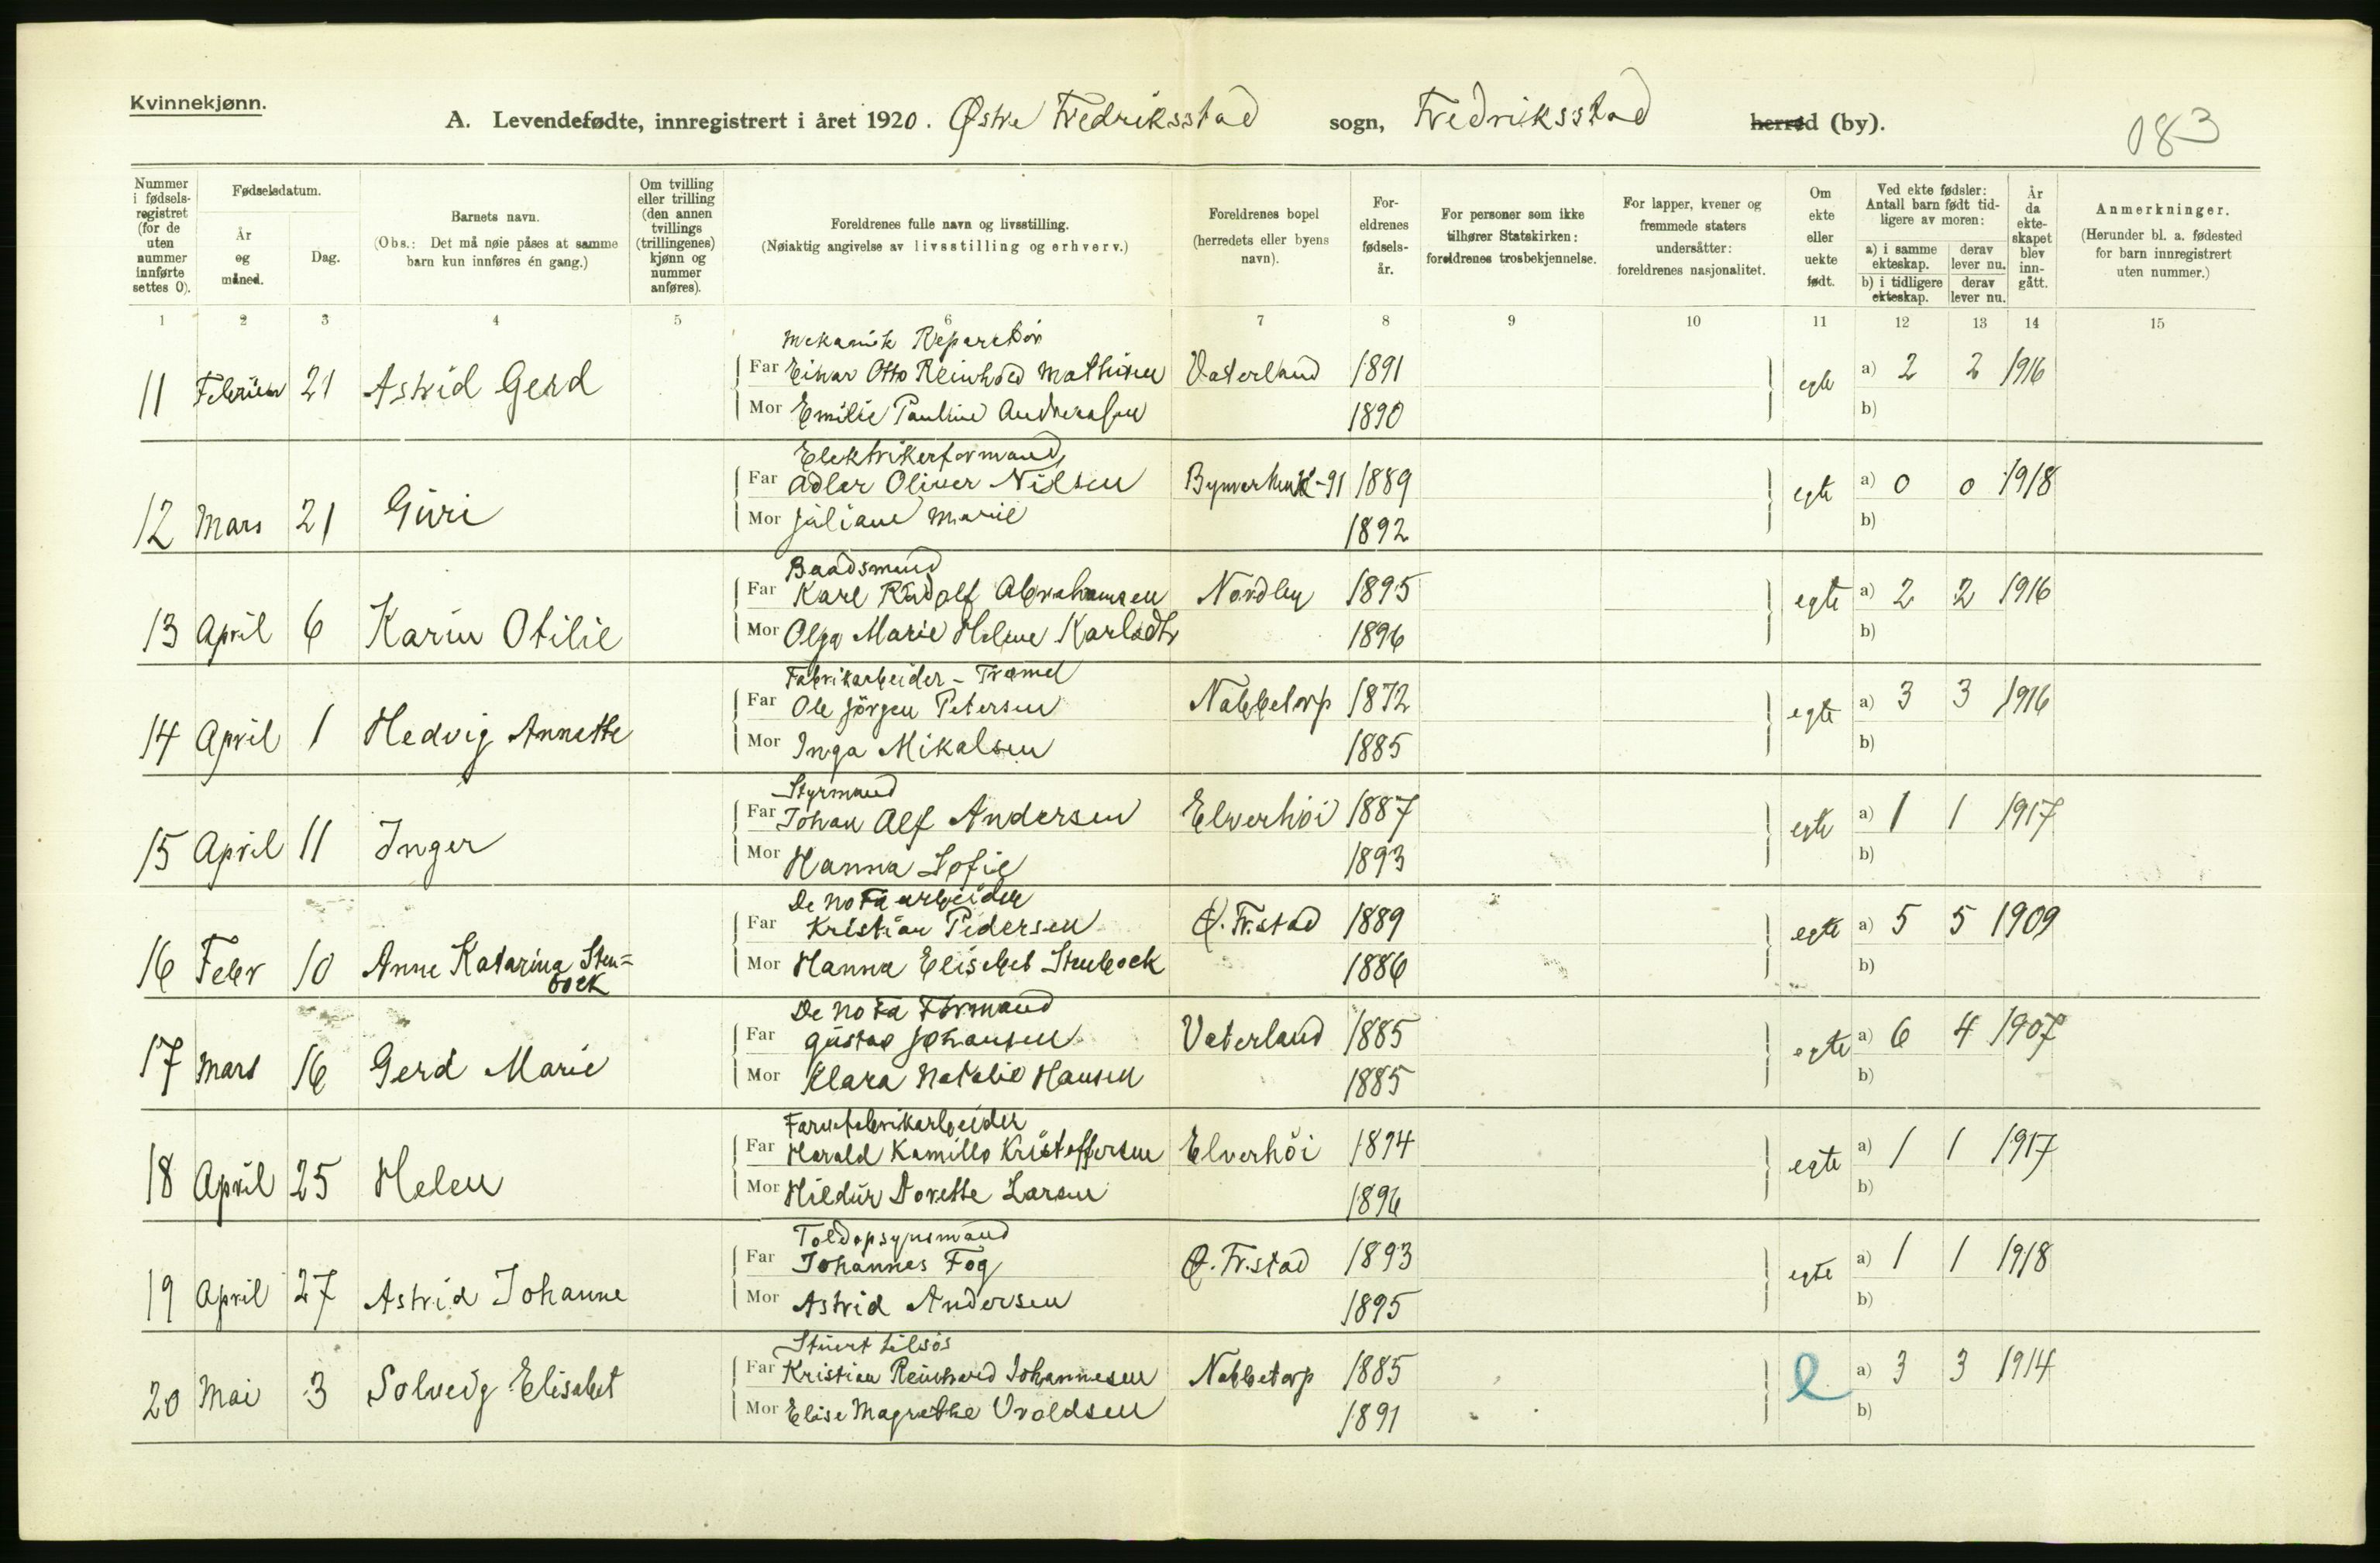 Kvinnekjønn.
A. Levendefødte, innregistrert i året 1920. Østre Fredriksstad sogn, Fredriksstad herred (by).
083
Nummer i fødsels-registret (for de uten nummer innførte settes 0).
Fødselsdatum.
År og måned.
Dag.
Barnets navn.
(Obs.: Det må nøie påses at samme barn kun innføres én gang.)
Om tvilling eller trilling (den annen tvillings (trillingenes) kjønn og nummer anføres).
Foreldrenes fulle navn og livsstilling.
(Nøiaktig angivelse av livsstilling og erhverv.)
Foreldrenes bopel (herredets eller byens navn).
For-eldrenes fødsels-år.
For personer som ikke tilhører Statskirken: foreldrenes trosbekjennelse.
For lapper, kvener og fremmede staters undersåtter: foreldrenes nasjonalitet.
Om ekte eller uekte født.
Ved ekte fødsler: Antall barn født tid-ligere av moren:
a) i samme ekteskap. derav lever nu.
b) i tidligere ekteskap. derav lever nu.
År da ekte-skapet blev inn-gått.
Anmerkninger.
(Herunder bl. a. fødested for barn innregistrert uten nummer.)
1 2 3 4 5 6 7 8 9 10 11 12 13 14 15
Mekanisk Reparatör
11 Februar 21 Astrid Gerd Far Einar Otto Reinhold Mathisen Vaterland 1891 egte a) 2 2 1916
Mor Emilie Pauline Andreassen 1890 b)
Elektrikerformand,
12 Mars 21 Guri Far Adler Oliver Nilsen 1889 egte a) 0 0 1918
Mor Juliane Marie 1892 b)
Baadsmand
13 April 6 Karin Otilie Far Karl Rudolf Abrahamsen Nordby 1895 egte a) 2 2 1916
Mor Olga Marie Helene Karlsdtr 1896 b)
Fabrikarbeider - Tramel
14 April 1 Hedvig Annette Far Ole Jörgen Petersen Nabbetorp 1872 egte a) 3 3 1916
Mor Inga Mikalsen 1885 b)
Styrmand
15 April 11 Inger Far Johan Alf Andersen Elverhöi 1887 egte a) 1 1 1917
Mor Hanna Sofie 1893 b)
De No Fa arbeider
16 Febr 10 Anne Katarina Sten= Far Kristian Pedersen Ø. Fr.stad 1889 egte a) 5 5 1909
bock Mor Hanna Elisabet Stenbock 1886 b)
De No Fa Formand
17 Mars 16 Gerd Marie Far Gustav Johansen Vaterland 1885 egte a) 6 4 1907
Mor Klara Natalie Hansen 1885 b)
Farvefabrikarbeider
18 April 25 Helen Far Harald Kamillo Kristoffersen Elverhöi 1894 egte a) 1 1 1917
Mor Hildur Dorette Larsen 1896 b)
Toldopsynsmand
19 April 27 Astrid Johanne Far Johannes Fog Ø. Fr.stad 1893 egte a) 1 1 1918
Mor Astrid Andersen 1895 b)
Stuert tilsös
20 Mai 3 Solveig Elisabet Far Kristian Reinhard Johannesen Nabbetorp 1885 e a) 3 3 1914
Mor Elise Magrethe Uvoldsen 1891 b)